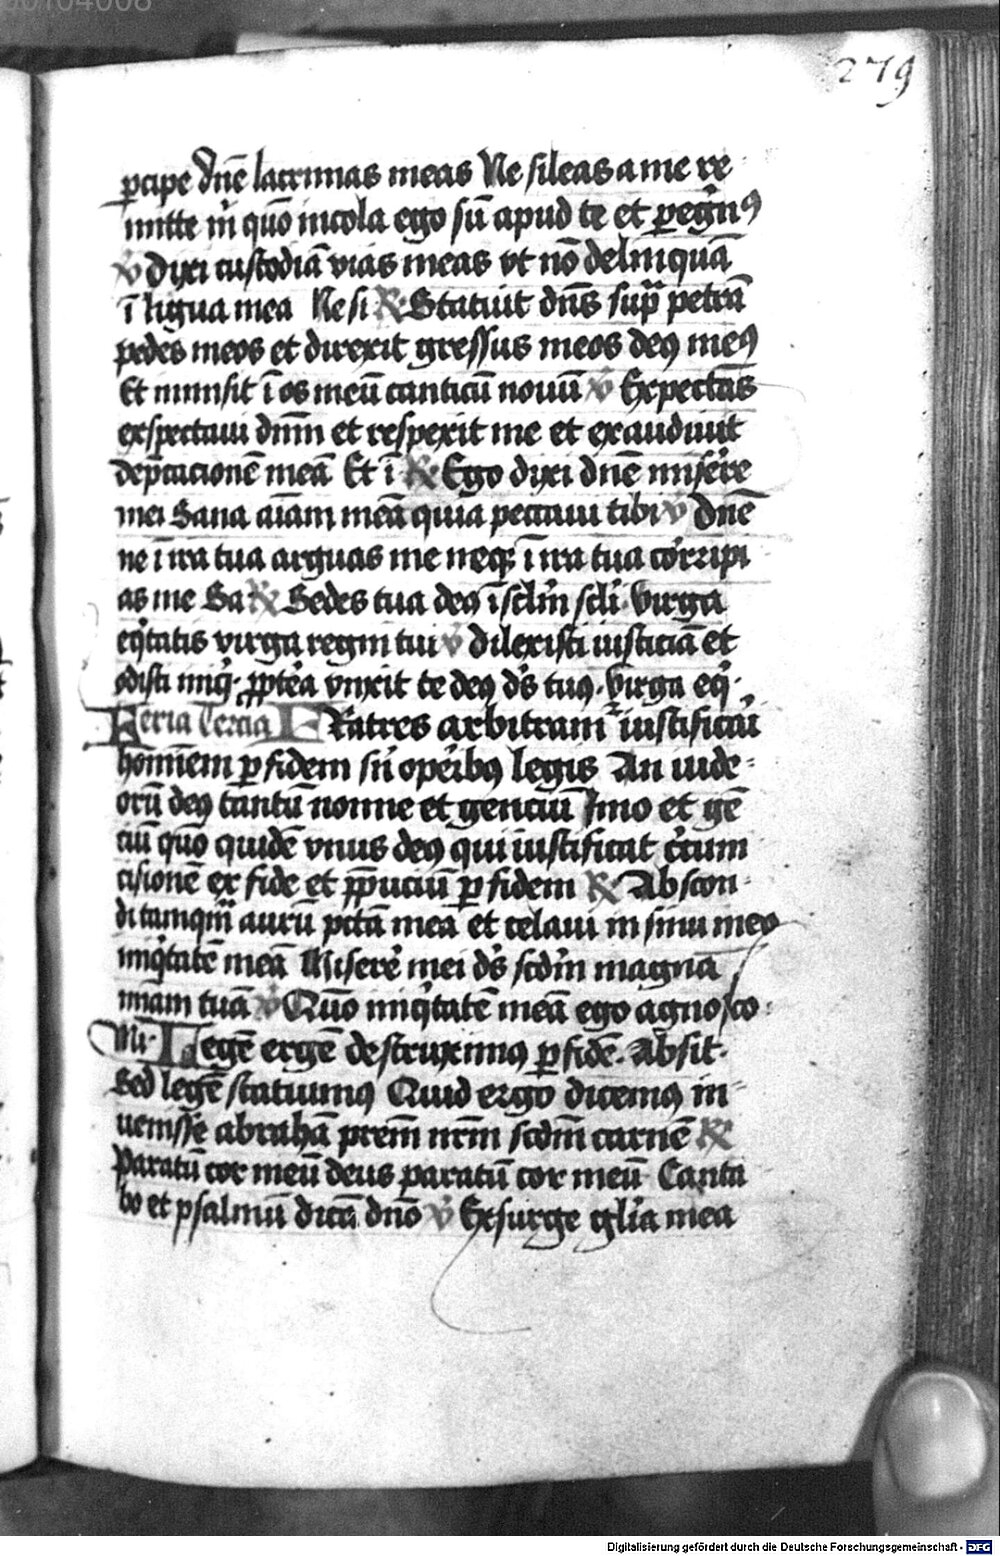 279
ꝑcipe dn̄e lacrimas meas Ne sileas a me re
mitte m̄ quō incola ego sū apud te et ꝑegn̄ꝰ
℣ dixi custodiā vias meas vt nō delinquā
ī ligua mea Ne si ℟ Statuit dn̄s supͣ petrā
pedes meos et direxit gressus meos deꝰ meꝰ
Et inmisit ī os meū canticū nouū ℣ Expectās
exspectaui dn̄m et respexit me et exaudiuit
dep̄cacionē meā Et ī ℟ Ego dixi dn̄e misere
mei Sana aīam meā quia peccaui tibi ℣ Dn̄e
ne ī ira tua arguas me neqꝫ ī ira tua corripi
as me Sa ℟ Sedes tua deꝰ ī sclm̄ scli̇ Virga
eqͥtatis virga regni tui ℣ dilexisti iusticiā et
odisti iniqͥ. ꝓptea vnxit te deꝰ ds̄ tuꝰ. Virga eqͥ.
Feria Tercia FRatres arbitramͬ iustificari
hominem ꝑ fidem sn̄ operibꝰ legis An iude
orū deꝰ tantū nonne et genciū Imo et gē
ciū quō quidē vnus deꝰ qui iustificat circum
cisionē ex fide et p̄puciū ꝑ fidem ℟ Abscon
di tamqͣm aurū pctā mea et celaui in sinu meo
iniqͥtatē meā Misere mei ds̄ scdm̄ magnā
m̄iam tuā ℣ Quō iniqͥtatē meā ego agnosco
Mi. Legē ergē destruximꝰ ꝑ fidē. Absit.
Sed legē statuimꝰ Quid ergo dicemꝰ in
uenisse abrahā prem̄ nrm̄ scdm̄ carnē ℟
Paratū cor meū deus paratū cor meū Canta
bo et psalmū dicā dn̄o ℣ Exsurge gl̄ia mea
Digitalisierung gefördert durch die Deutsche Forschungsgemeinschaft - DFG